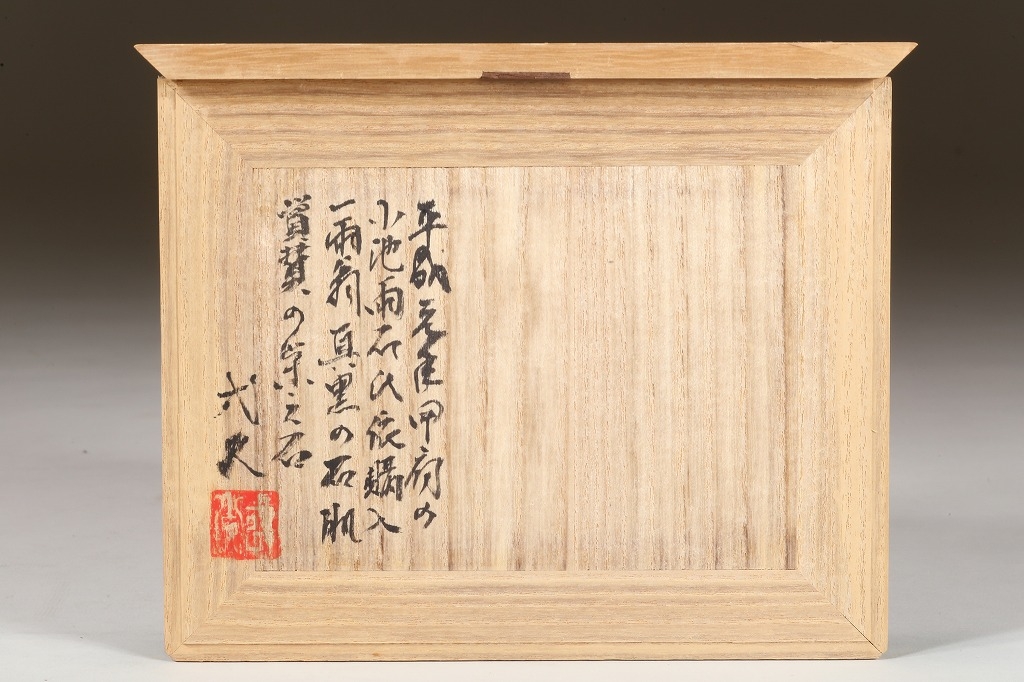 平成元年甲府の
小池雨石氏依購入
一雨翁真黒の石肌
賞賛の
石